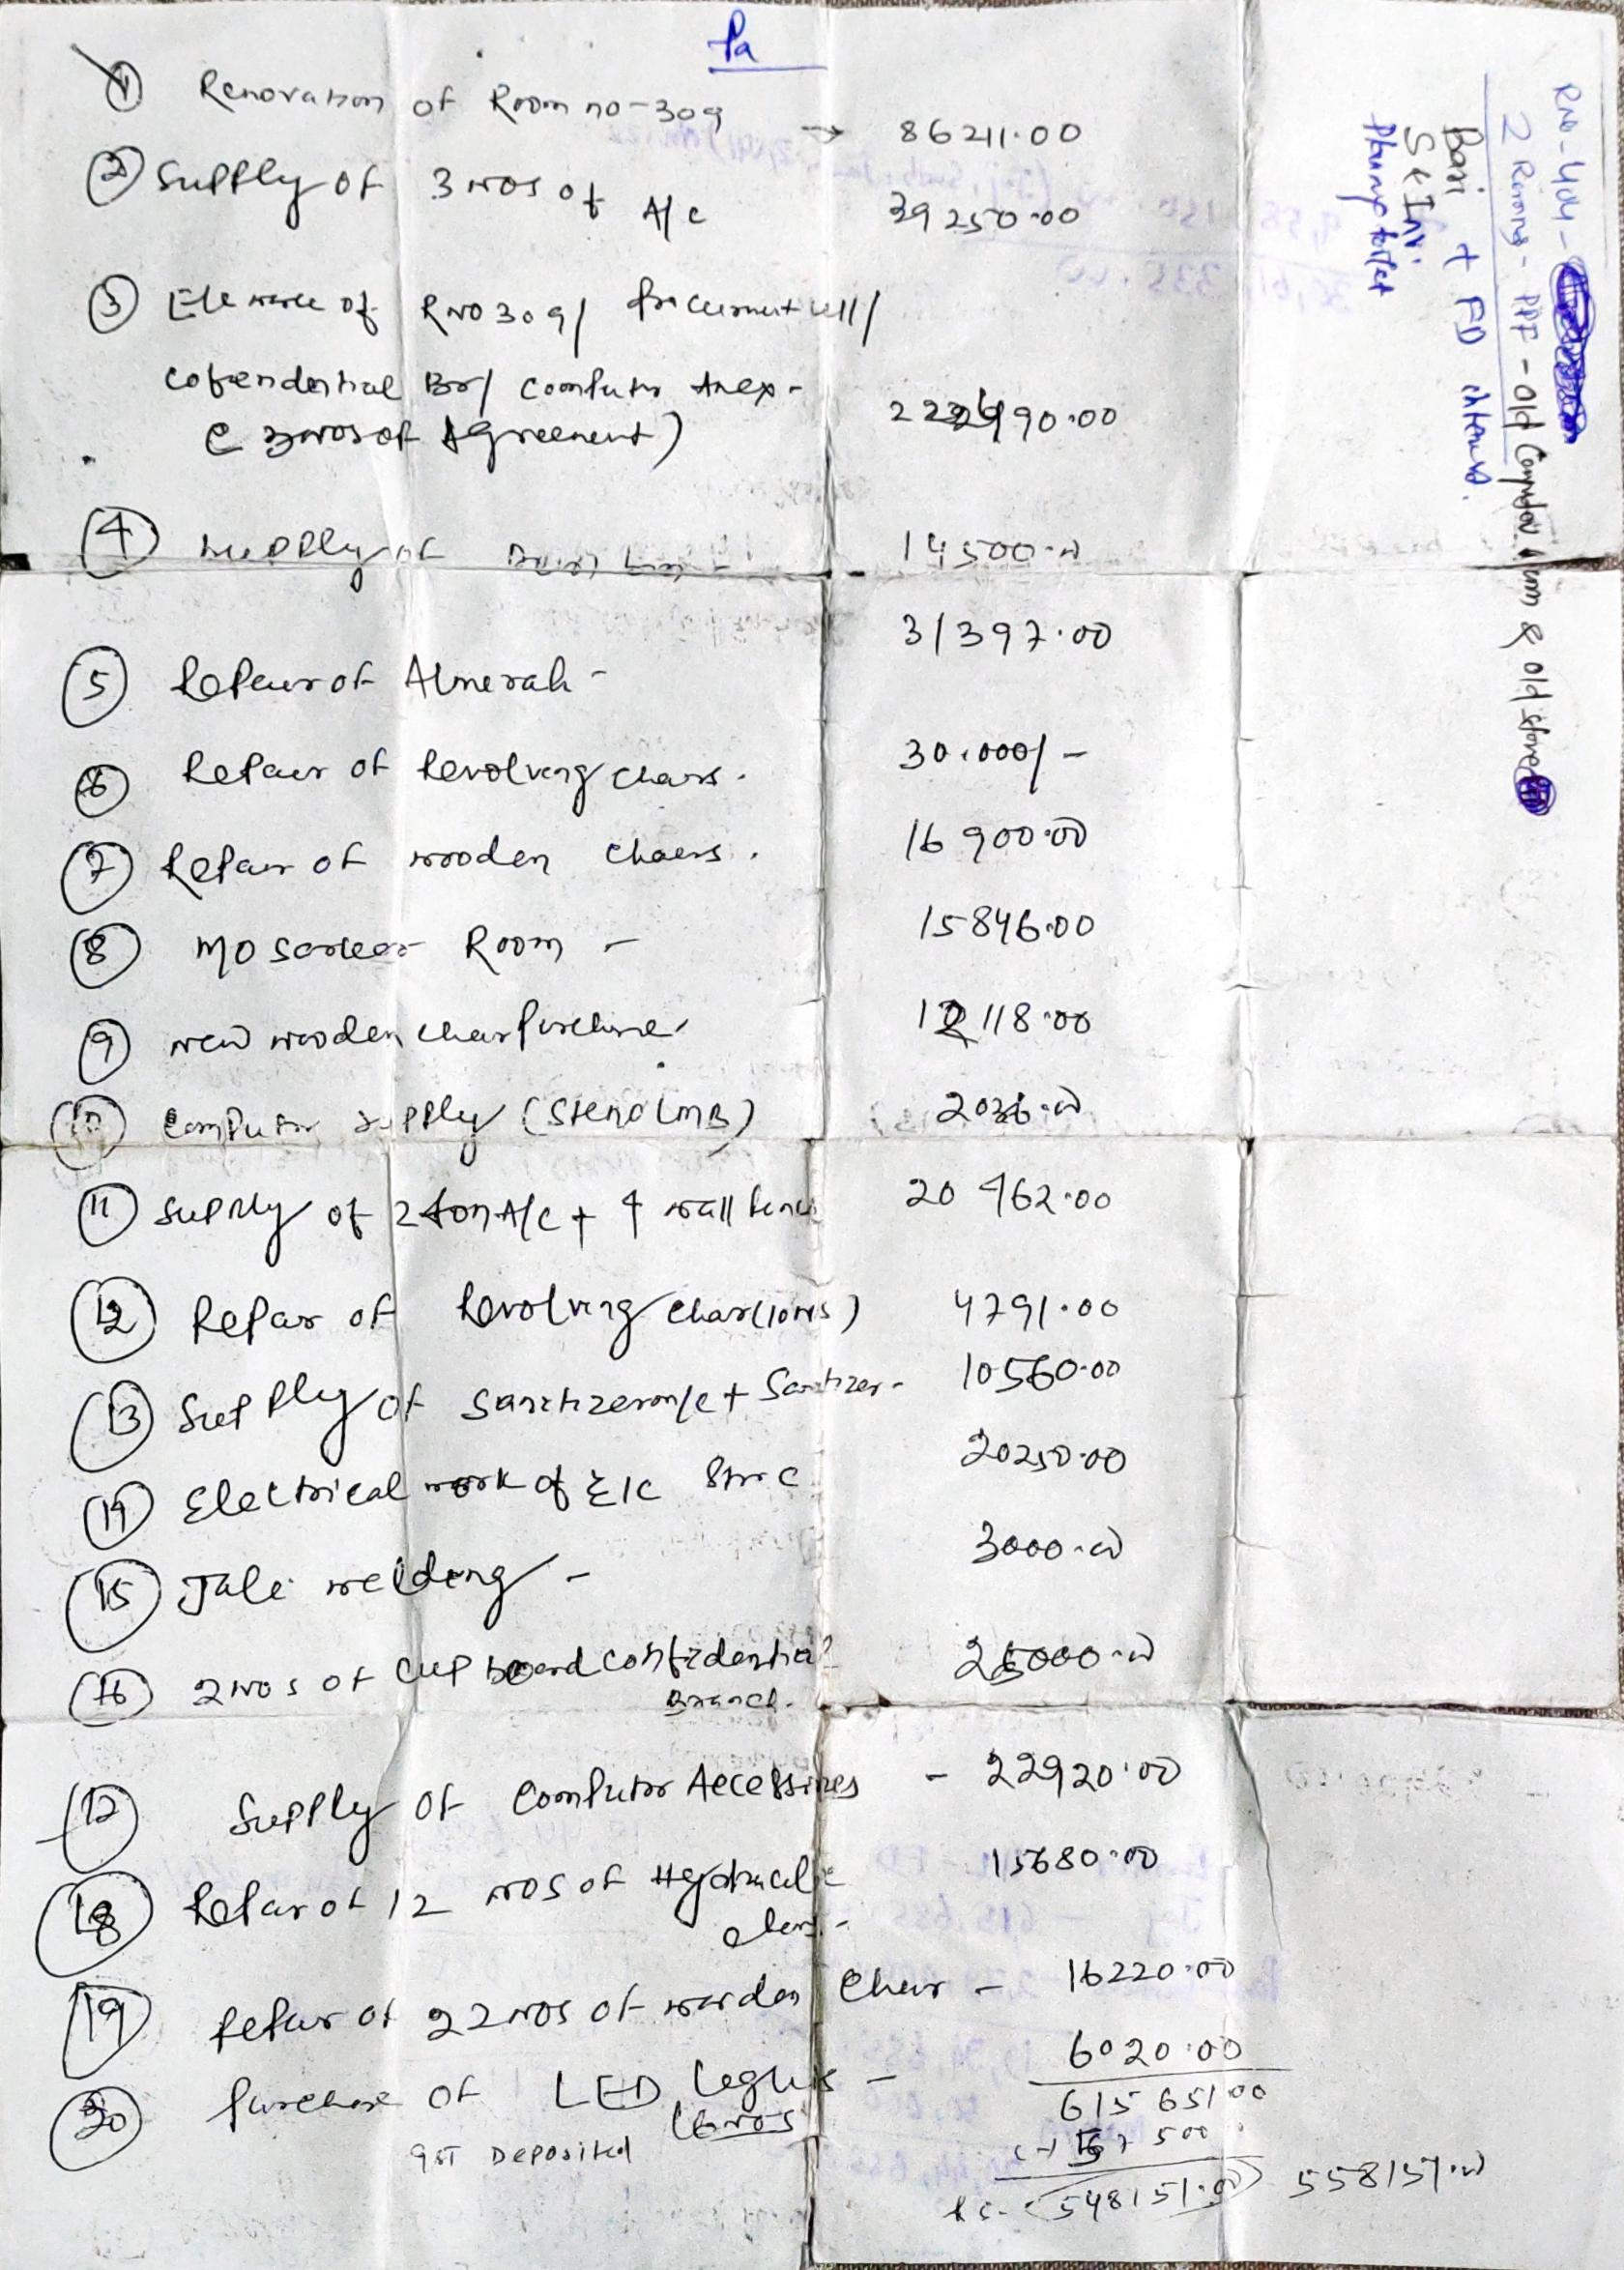 Pa
① Renovation of Room no-309 → 86211.00
② Supply of 3 nos of A/c 39250.00
③ Ele work of RNO 309/ Procurement cell/
cofendential Br/ Computer Anex-
( 3 nos of Agreement) 90.00
④ Supply of 14500.00
⑤ Repair of Almerah - 31397.00
⑥ Repair of Revolving chairs. 30.000/-
⑦ Repair of wooden chaers. 16900.00
⑧ Room - 15846.00
⑨ new wooden chair Purchase 12118.00
⑩ Computer Supply (Steno LMB) 2036.00
⑪ Supply of 2 ton A/c + 4 wall 20462.00
⑫ Repair of Revolving chair (10 nos) 4791.00
⑬ Supply of Sanitizer m/c + Sanitizer - 10560.00
⑭ Electrical work of E/C 20250.00
⑮ Jali welding - 3000.00
⑯ 2 nos of cup board confidential 25000.00
Branch.
⑰ Supply of Computer Accessiries - 22920.00
⑱ Repair of 12 nos of Hydraulic 15680.00
chair -
⑲ Repair of 22 nos of wooden Chair - 16220.00
⑳ Purchase of LED Leghts - 6020.00
(6 nos) 615651.00
GST Deposited (-) 57500
Rs. 548151.00 558151.00
RNo-404-
2 Rooms - PPF - Old Computer room & old store
Bari + FD
S & Inv.
toilet